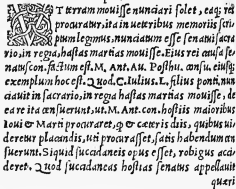 VT terram mouisse nunciari solet, eaq; res
procuratur, ita in ueteribus memoriis scri
ptum legimus, nunciatum esse senatui sacra
rio, in regia hastas martias mouisse. Eius rei causa se
natuscon. factum est. M. Ant. Au. Posthu. cōnsu, eiusq;
exemplum hoc est. Quod. C. Iulius. L. filius ponti, nun
ciauit in sacrario, in regia hastas martias mouisse, de
ea re ita censuerunt, ut. M. Ant. con. hostiis maioribus
Ioui & Marti procuraret, & cæteris diis, quibus ui
deretur placandis, uti procurasset, satis habendum cen
suerunt. Si quid succidaneis opus esset, robigus acce
deret. Quod succidaneas hostias senatus appellauit
quæri